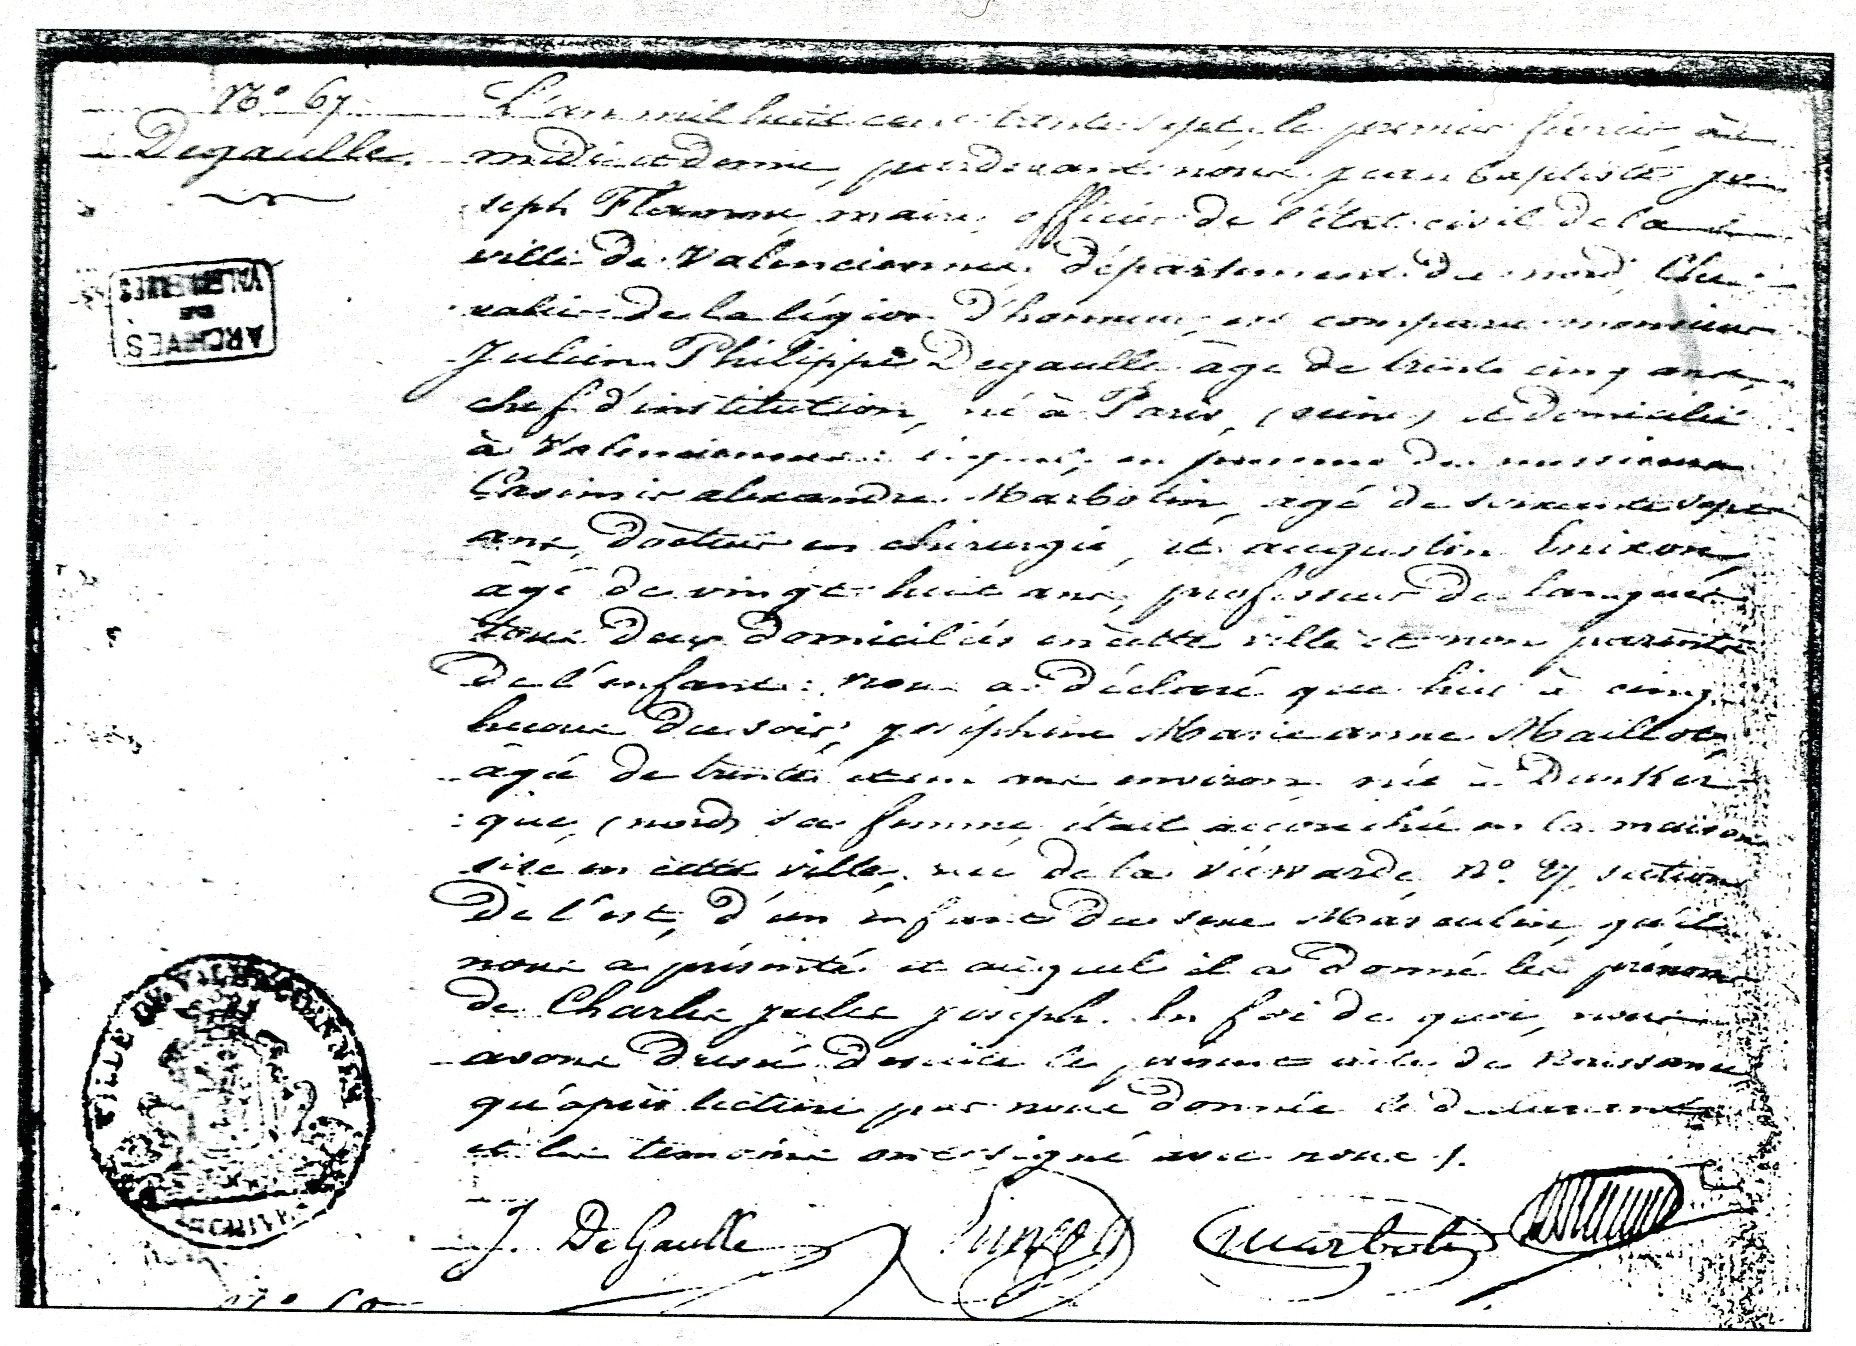 N.° 67.
Degaulle.
L'an mil huit cent trente sept, le premier février à
midi et demie, pardevant nous jean baptiste jo
seph Flamme, maire, officier de l'état civil de la
ville de Valenciennes, département du nord, Che
valier de la légion d'honneur, est comparu monsieur
Julien Philippe Degaulle âgé de trente cinq ans,
chef d'institution, né à Paris, (seine) et domicilié
à Valenciennes: lequel, en présence de messieurs
Casimir alexandre Marbotin, agé de soixante sept
ans, docteur en chirurgie, et augustin
âgé de vingt huit ans, professeur de langues
tous deux domiciliés en cette ville et non parents
de l'enfant: nous a déclaré que hier à cinq
heures du soir, joséphine Marie anne Maillot,
âgée de trente et un ans environ née à Dunker
que, (nord) sa femme, était accouchée en la maison
sise en cette ville, rue de la viewarde, N.° 27, section
de l'est, d'un enfant du sexe Masculin, qu'il
nous a présenté et auquel il a donné les prénoms
de Charles jules joseph. En foi de quoi, nous
avons dressé desuite le présent acte de Naissance
qu'après lecture par nous donnée le déclarant
et les temoins ont signé avec nous /.
J. DeGaulle
Marbotin
ARCHIVES
DE
VALENCIENNES
VILLE DE VALENCIENNES
ARCHIVES